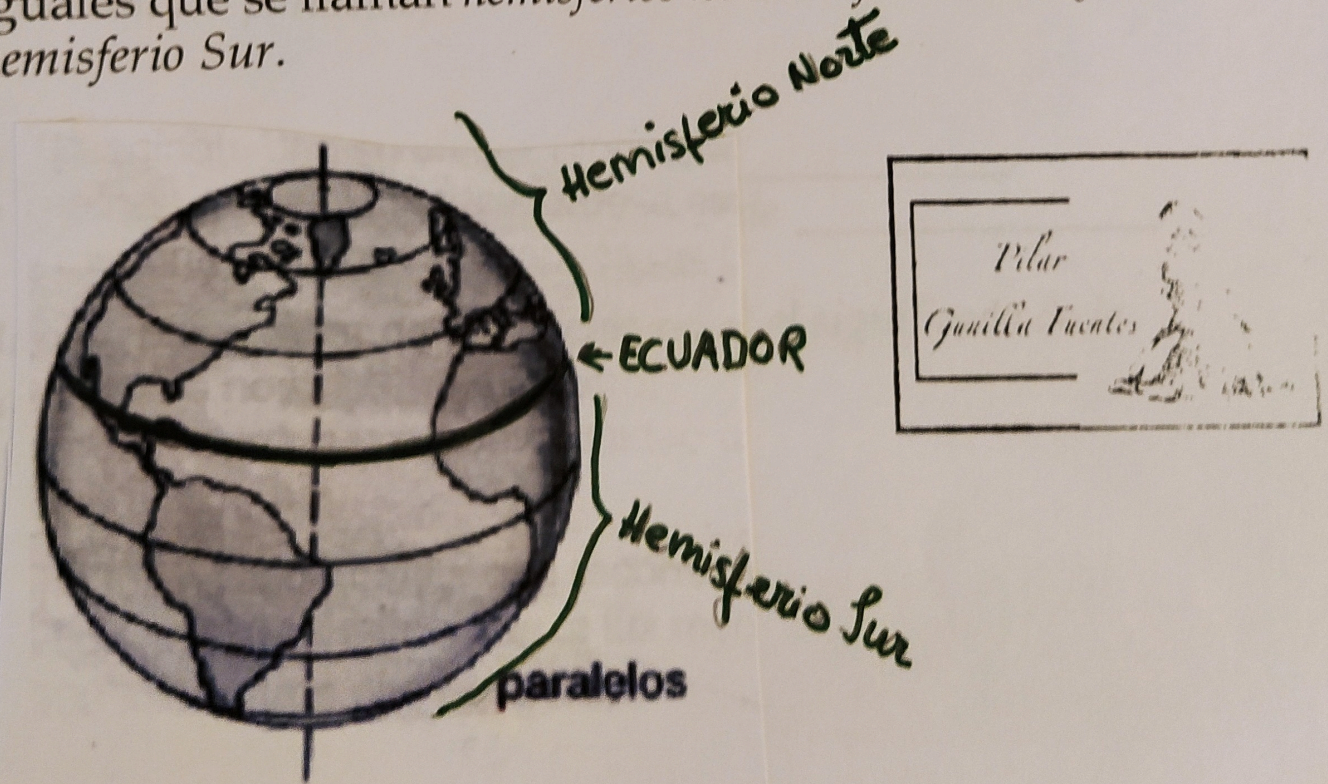 que se llaman
emisferio Sur.
Hemisferio Norte
ECUADOR
Hemisferio Sur
paralelos
Pilar
Gunilla Fuentes